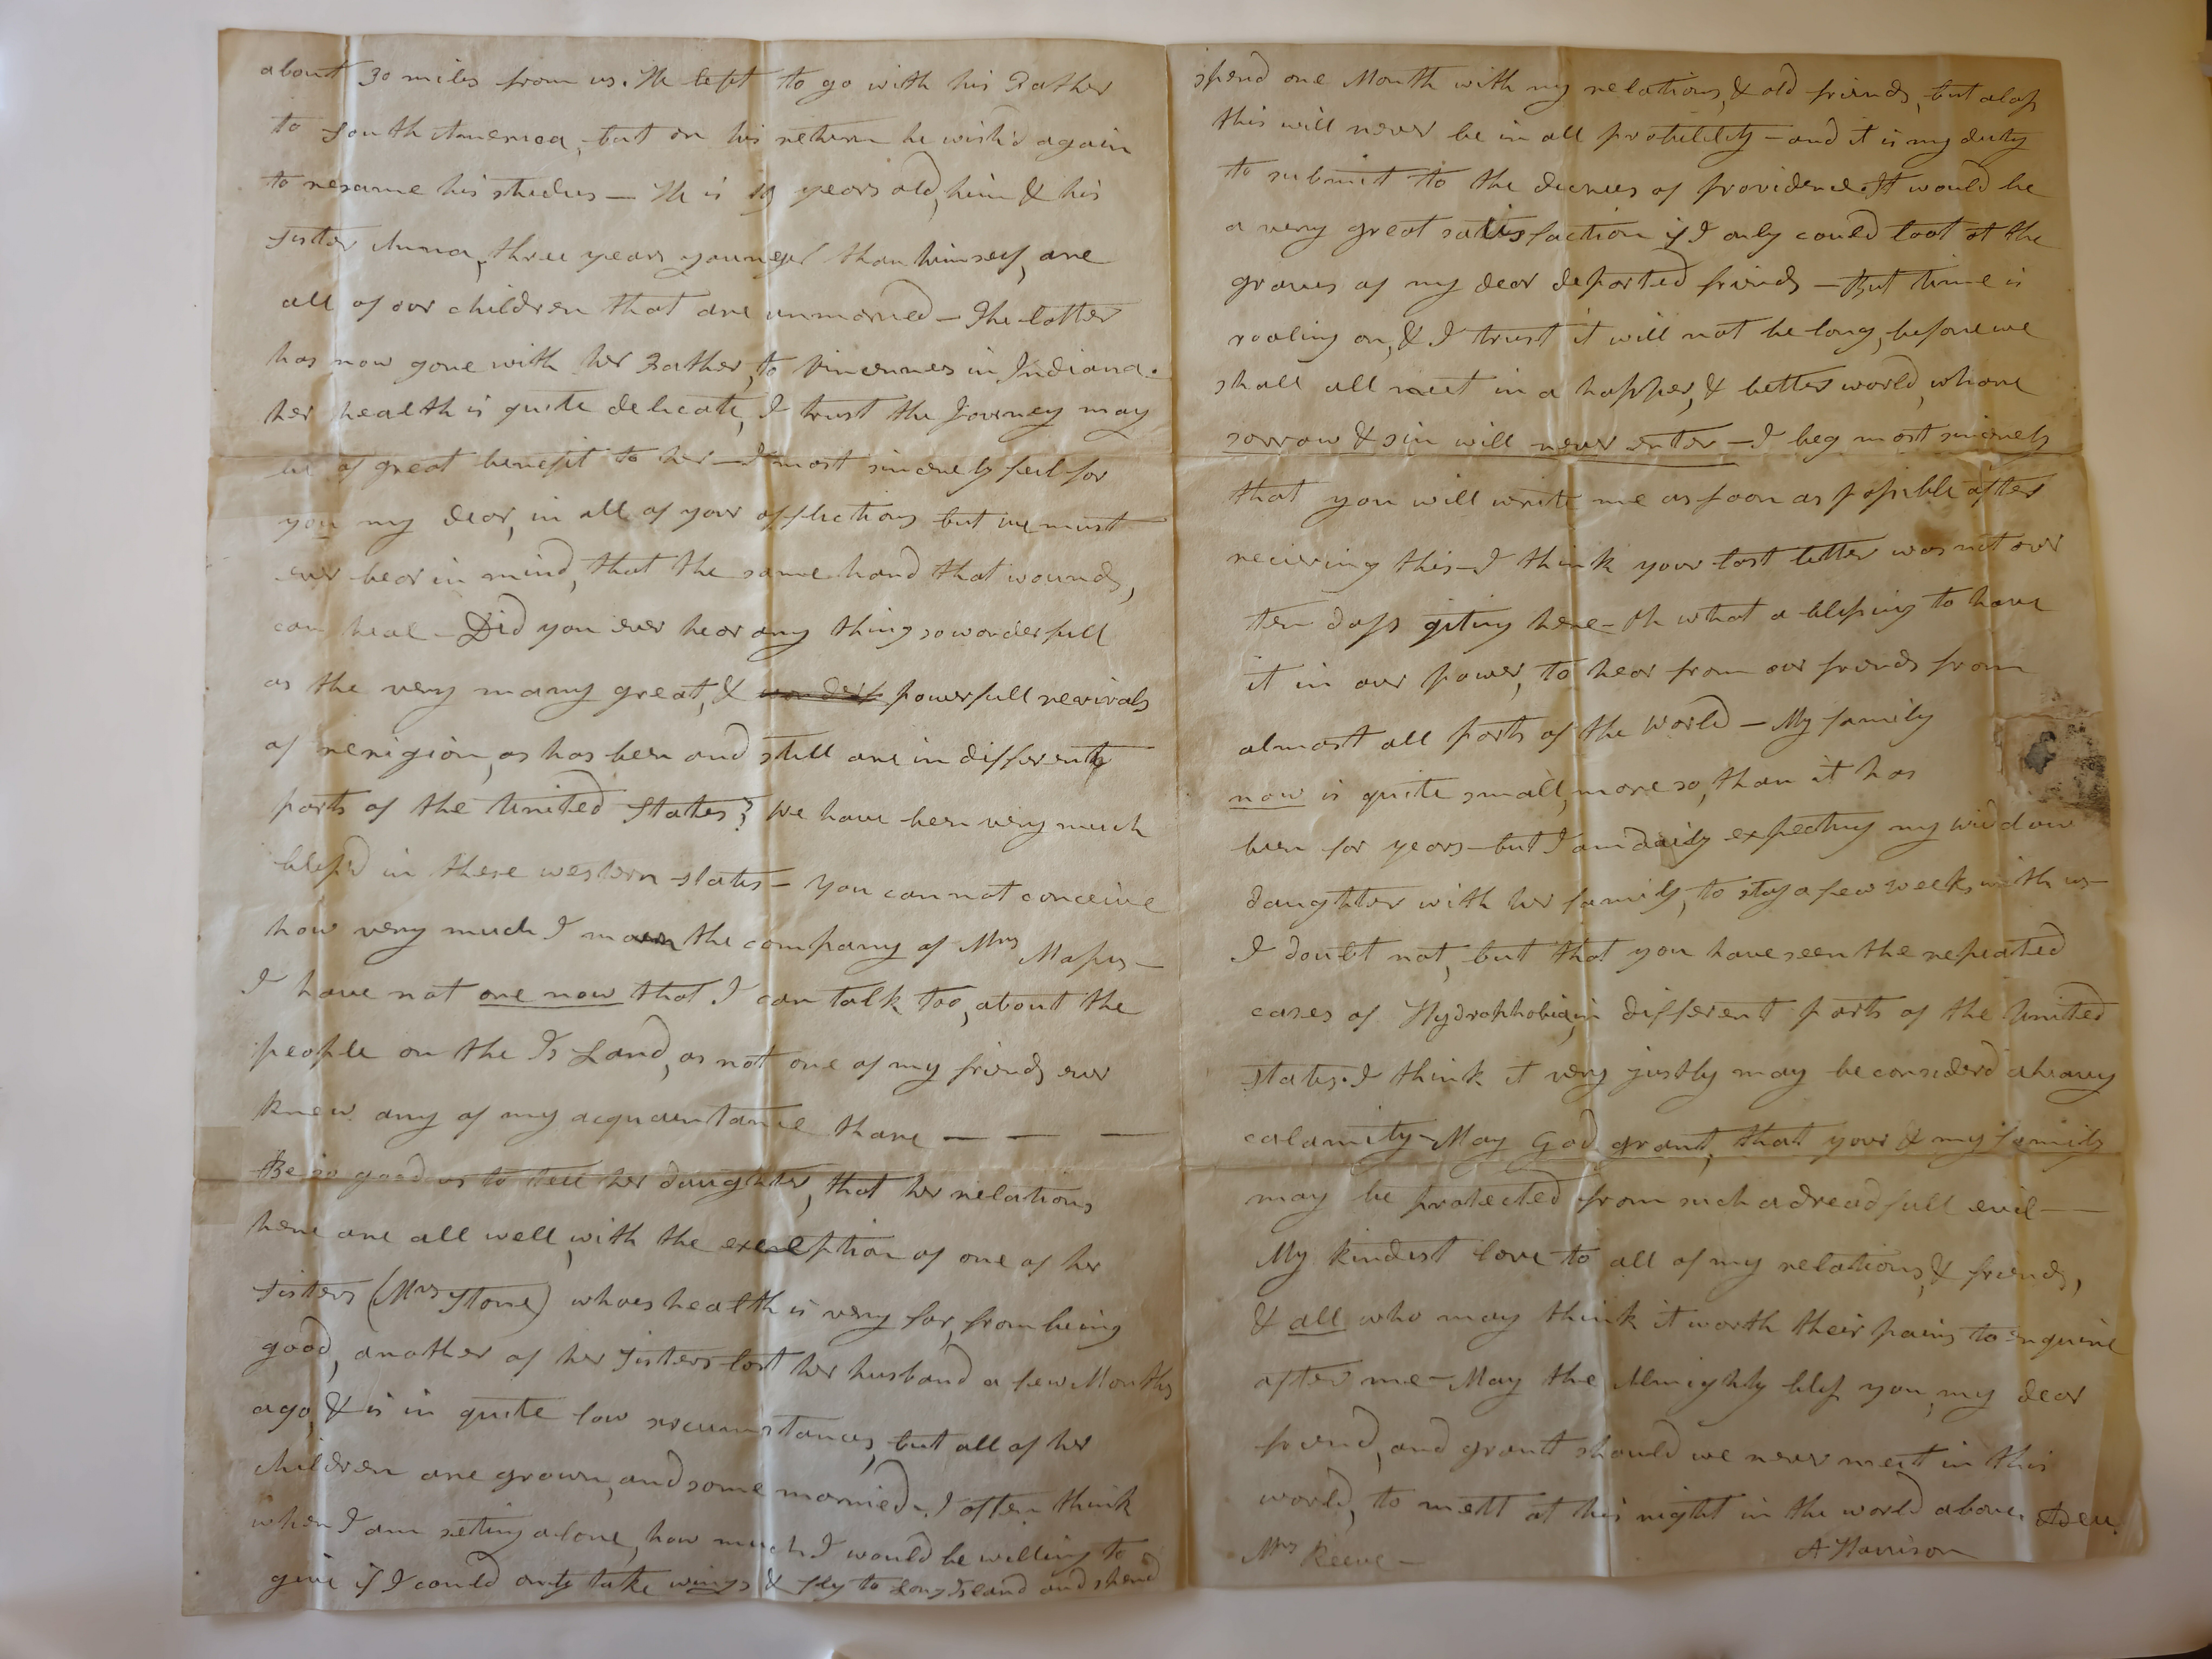 about 30 miles from us. He left to go with his Father
to South America, but on his return he wish'd again
to resame his studies — He is 19 years old, him & his
Sister Anna, three years younger than himself, are
all of our children that are unmarried — The latter
has now gone with her Father, to Vincennes in Indiana.
her health is quite delicate, I trust the Journey may
be of great benefit to her — I most sincerely feel for
you my dear, in all of your afflictions but we must
ever bear in mind, that the same hand that wounds,
can heal — Did you ever hear any thing so wonderfull
as the very many great, & powerfull revivals
of renigion, as has been and still are in different
parts of the United States? We have been very much
bless'd in these western states — You can not conceive
how very much I the company of Mrs
I have not one now that I can talk too, about the
people on the Is Land, as not one of my friends ever
knew any of my acquaintance thare — — —
Be so good as to tell her daughter, that her relations
here are all well, with the exception of one of her
Sisters (Mrs Stone) whoes health is very far, from being
good, another of her Sisters lost her husband a few Months
ago, & is in quite low srcumstances, but all of her
children are grown, and some married. I often think
when I am setting alone, how much I would be willing to
give if I could only take wings & fly to Long Island and spend
spend one Month with my relations, & old friends, but alass
this will never be in all probility — and it is my duty
to submit to the decrees of providence. It would be
a very great satisfaction if I only could look at the
graves of my dear departed friends — But time is
rooling on, & I trust it will not be long, before we
shall all meet in a happer, & better world, whare
sorrow & sin will never enter — I beg most sincerely
that you will write me as soon as possible after
recieving this — I think your last letter was not over
ten days giting here — Oh what a blessing to have
it in our power, to hear from our friends from
almost all parts of the world — My family
now is quite small, more so, than it has
been for years — but I am daily expecting my widdow
daughter with her family, to stay a few weeks with us —
I doubt not, but that you have seen the repeated
cases of Hydrophobia, in different parts of the United
States. I think it very justly may be considerd a heavy
calamity — May God grant, that your & my family
may be protected from such a dreadfull evil — —
My kindest love to all of my relations, & friends,
& all who may think it worth their pains to enquire
after me — May the Almighty bless you, my dear
friend, and grant should we never meet in this
world, to mett at his right in the world above. Adeu.
Mrs Reeve — A Harrison